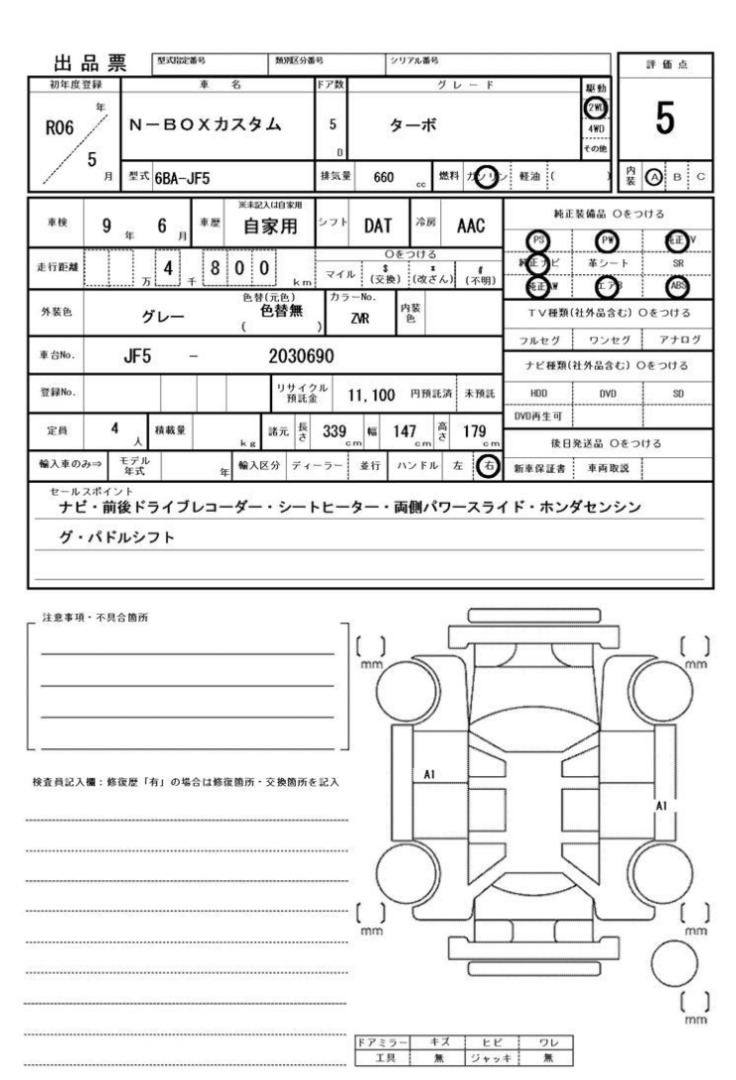 出品票 型式指定番号 類別区分番号 シリアル番号 評価点
初年度登録 車名 ドア数 グレード 駆動
R06 年 5 月 N－BOXカスタム 5 D ターボ 2WD 4WD その他 5
型式 6BA-JF5 排気量 660 cc 燃料 ガソリン 軽油 ( ) 内装 A B C
車検 9 年 6 月 車歴 ※未記入は自家用 自家用 シフト DAT 冷房 AAC 純正装備品 ○をつける
PS PW 純正TV
走行距離 万 4 千 8 0 0 km ○をつける マイル $(交換) *(改ざん) #(不明) 純正ナビ 革シート SR
純正AW エアB ABS
外装色 グレー 色替(元色) 色替無 ( ) カラーNo. ZVR 内装色 TV種類(社外品含む) ○をつける
フルセグ ワンセグ アナログ
車台No. JF5 － 2030690 ナビ種類(社外品含む) ○をつける
登録No. リサイクル預託金 11,100 円預託済 未預託 HDD DVD SD
DVD再生可
定員 4 人 積載量 kg 諸元 長さ 339 cm 幅 147 cm 高さ 179 cm 後日発送品 ○をつける
輸入車のみ⇒ モデル年式 年 輸入区分 ディーラー 並行 ハンドル 左 右 新車保証書 車両取説
セールスポイント
ナビ・前後ドライブレコーダー・シートヒーター・両側パワースライド・ホンダセンシン
グ・パドルシフト
注意事項・不具合箇所
mm mm
検査員記入欄：修復歴「有」の場合は修復箇所・交換箇所を記入
A1
A1
mm mm
mm
ドアミラー キズ ヒビ ワレ
工具 無 ジャッキ 無